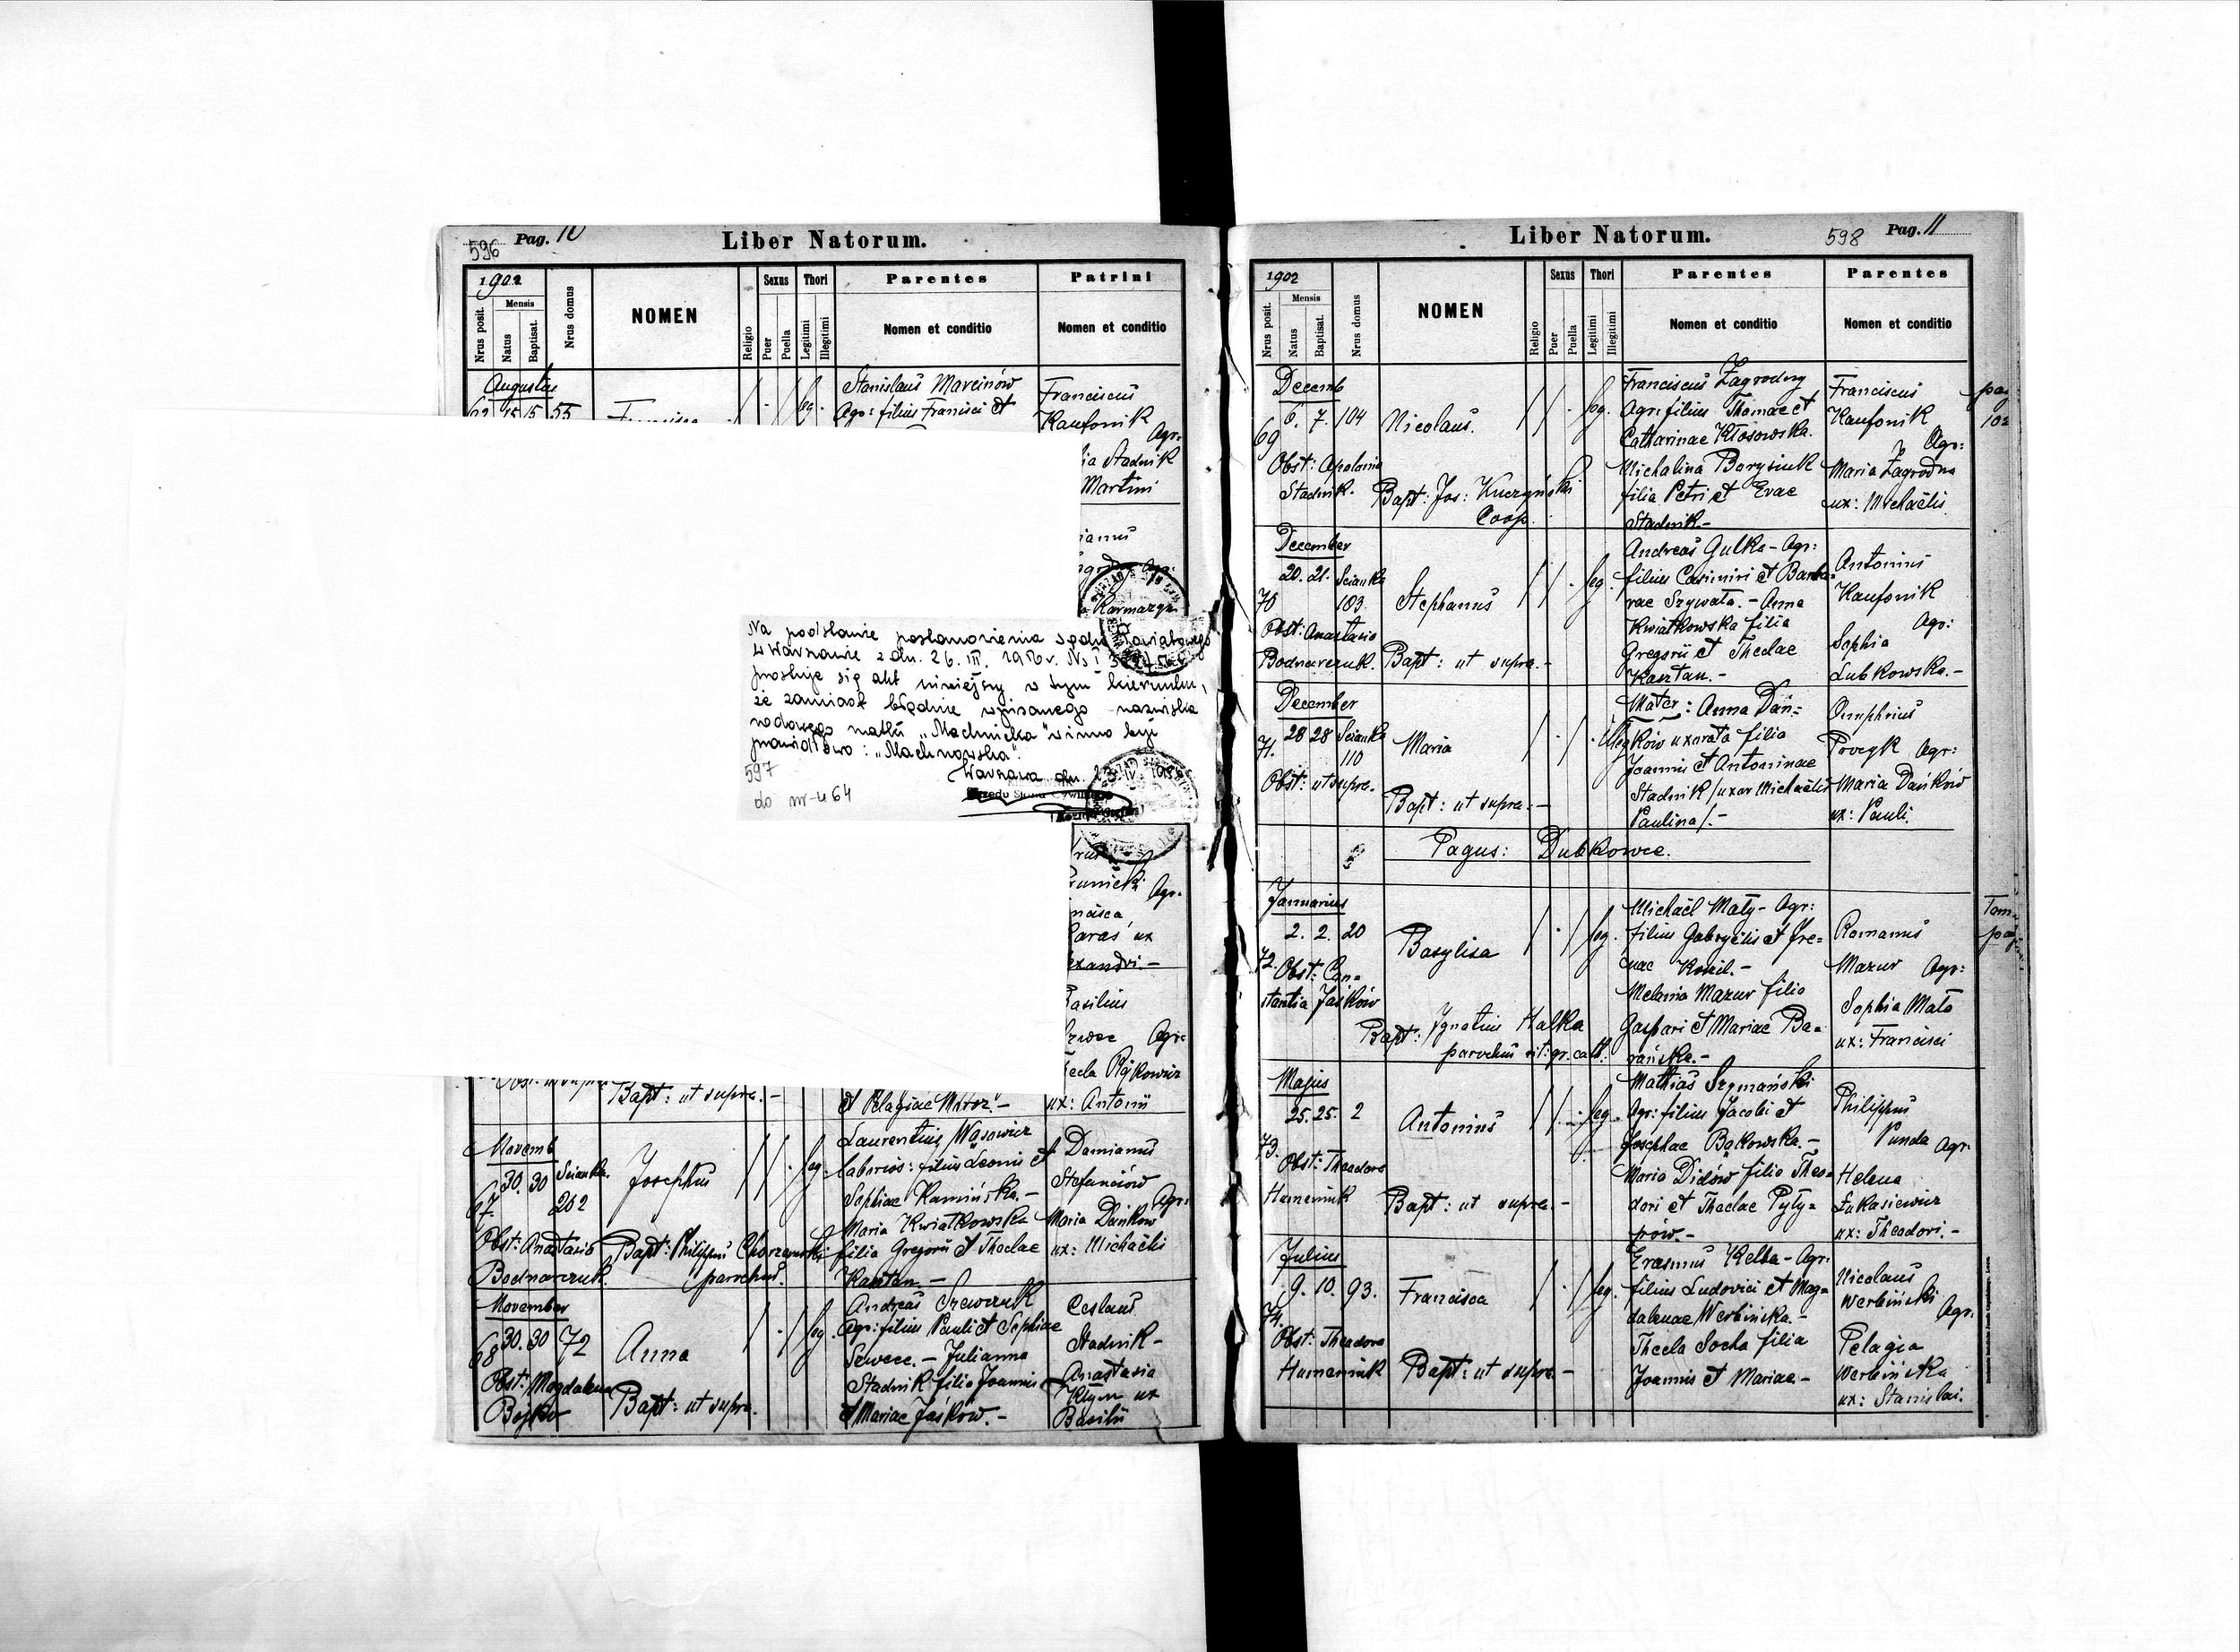 596 Pag. 10
Liber Natorum.
1902
Mensis
Nrus posit.
Natus
Baptisat.
Nrus domus
NOMEN
Religio
Sexus
Puer
Puella
Thori
Legitimi
Illegitimi
Parentes
Nomen et conditio
Patrini
Nomen et conditio
Augustus
15 15 55
leg.
Stanislaus Marcinów
Agr: filius Francisci et
Franciscus
Kaufonik
Agr:
Stadnik
Martini
Karmazyn
Na podstawie postanowienia Sądu Powiatowego
w Warszawie z dn. 26. III. 1956 r. Ns I
prostuje się akt niniejszy w tym kierunku,
że zamiast błędnie wpisanego nazwiska
rodowego matki „Machnicka" winno być
prawidłowo: „Machnowska".
Warszawa dn.
597
do nr-u 64
Agr.
ux
Basilius
Agr:
Bapt: ut supra.-
et Pelagiae Moroz.-
ux: Antonii
Novemb
30. 30 Scianka
67. 202
Josephus
leg.
Laurentius Wąsowicz
laborios: filius Leonis et
Sophiae Kamińska.-
Maria Kwiatkowska
filia Gregorii et Theclae
Kasztan.-
Damianus
Stefanciów
Agr:
Maria Dańków
ux: Michaëlis
Obst: Anastasia
Bodnarczuk.
Bapt: Philippus Chorzemski
parochus.
November
68 30. 30 72
Anna
leg.
Andreas Szewczuk
Agr: filius Pauli et Sophiae
Szwecc.- Julianna
Stadnik filia Joannis
et Mariae Jaśków.-
Ceslaus
Stadnik-
Anastasia
Klym ux
Basilii
Obst: Magdalena
Bojko
Bapt: ut supra.
Liber Natorum.
598 Pag. 11
1902
Mensis
Nrus posit.
Natus
Baptisat.
Nrus domus
NOMEN
Religio
Sexus
Puer
Puella
Thori
Legitimi
Illegitimi
Parentes
Nomen et conditio
Parentes
Nomen et conditio
Decemb
69 6. 7. 104
Nicolaus.
leg.
Franciscus Zagrodny
Agr: filius Thomae et
Catharinae Kłosowska.
Michalina Borysiuk
filia Petri et Evae
Stadnik.-
Franciscus
Kaufonik
Agr:
Maria Zagrodna
ux: Michaëlis
pag
102
Obst: Apolonia
Stadnik.
Bapt: Jos: Kuczyński
Coop.
December
20. 21. Scianka
70 103.
Stephanus
leg.
Andreas Gulka- Agr:
filius Casimiri et Barba-
rae Szywała.- Anna
Kwiatkowska filia
Gregorii et Theclae
Kasztan.-
Antonius
Kaufonik
Agr:
Sophia
Lubkowska.-
Obst: Anastasia
Bodnarczuk.
Bapt: ut supra.-
December
28 28 Scianka
71. 110
Maria
Illeg
Mater: Anna Dań=
ków uxorata filia
Joannis et Antoninae
Stadnik /uxor Michaëlis
Paulina/.-
Onuphrius
Procyk Agr:
Maria Dańków
ux: Pauli.
Obst: ut supra.
Bapt: ut supra.-
Pagus: Dubkowce.
Januarius
2. 2. 20
72.
Basylisa
leg.
Michaël Mały- Agr:
filius Gabryëlis et Ire=
nae Kozil.-
Melania Mazur filia
Gaspari et Mariae Ba=
rańska.-
Romanus
Mazur Agr:
Sophia Mała
ux: Francisci
Tom.
pag.
Obst: Con=
stantia Jaśków
Bapt: Ignatius Halka
parochus rit: gr. cath:
Majus
25. 25. 2
73.
Antonius
leg.
Mathias Szymański
Agr: filius Jacobi et
Josephae Bąkowska.-
Maria Didów filia Theo=
dori et Theclae Pyły=
pów.-
Philippus
Punda Agr.
Helena
Łukasiewicz
ux: Theodori.-
Obst: Theodora
Humeniuk
Bapt: ut supra.-
Julius
9. 10. 93.
74.
Francisca
leg.
Erasmus Kelba- Agr:
filius Ludovici et Mag=
dalenae Werbińska.-
Thecla Socha filia
Joannis et Mariae-
Nicolaus
Werbiński
Agr.
Pelagia
Werbińska
ux: Stanislai.
Obst: Theodora
Humeniuk
Bapt: ut supra-